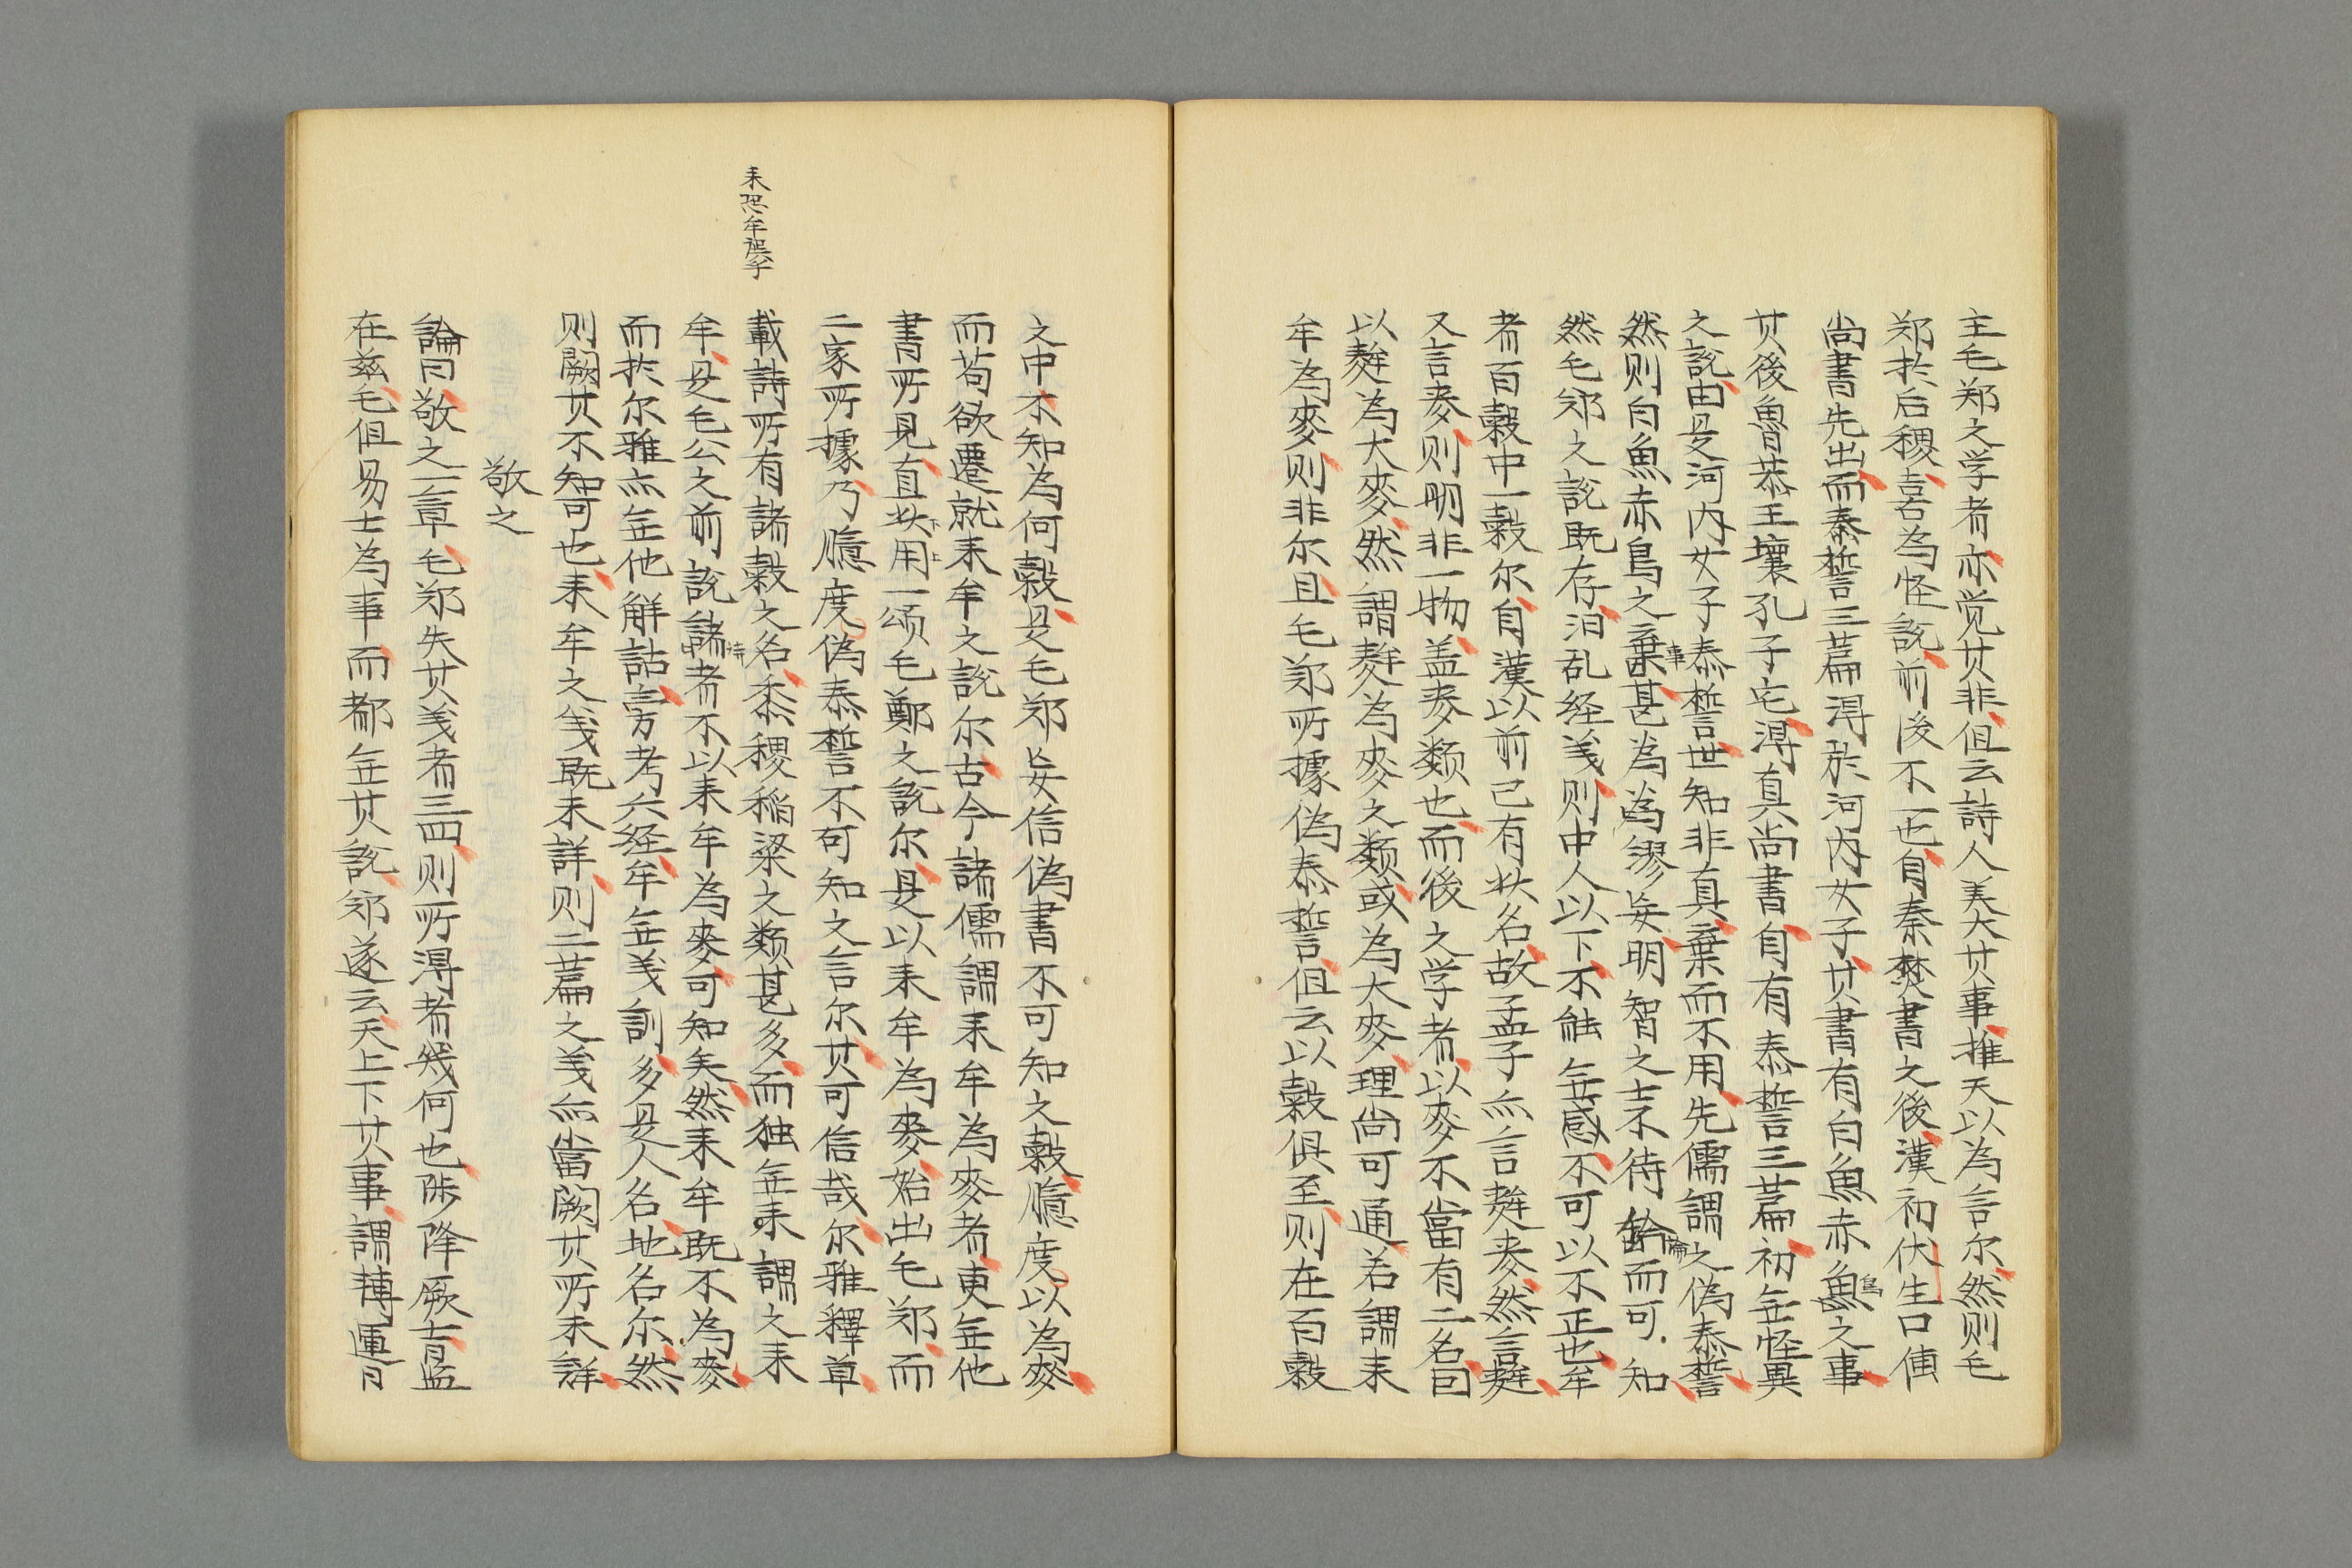 主毛郑之学者亦觉其非但云詩人美大其事推天以為言尔然则毛
郑於后稷喜為怪説前後不一也自秦焚書之後漢初伏生口傳
尚書先出而泰誓三篇淂於河内女子其書有白魚赤魚之事
烏
其後魯恭王壞孔子宅淂真尚書自有泰誓三篇初無怪異
之說由是河内女子泰誓世知非真棄而不用先儒謂之偽泰誓
然则白魚赤烏之棄甚為謬妄明智之士不待論而可知
事
論
然毛郑之說既存汩乱经義则中人以下不能無惑不可以不正也牟
者百穀中一穀尔自漢以前已有此名故孟子亦言麰麥然言麰
又言麥则明非一物盖麥類也而後之学者以麥不當有二名因
以麰為大麥然謂麰為麥之類或為大麥理尚可通若謂来
牟為麥则非尔且毛郑所據偽泰誓但云以穀俱至则在百穀
之中不知為何穀是毛郑妄信偽書不可知之穀臆度以為麥
而苟欲遷就来牟之說尔古今諸儒謂来牟為麥者更無他
書所見直此用一頌毛鄭之說尔是以来牟為麥始出毛郑而
下上
二家所據乃臆度偽泰誓不可知之言尔其可信哉尔雅釋草
載詩所有諸穀之名黍稷稻粱之類甚多而独無来謂之来
来恐牟誤乎
牟是毛公之前說諸者不以来牟為麥可知矣然来牟既不為麥
詩
而於尔雅亦無他解詁旁考六经牟無義訓多是人名地名尔然
则闕其不知可也来牟之義既未詳则二篇之義亦當闕其所未詳
敬之
論曰敬之一章毛郑失其義者三四则所淂者幾何也陟降厥士日监
在兹毛但易士為事而都無其說郑遂云天上下其事謂轉運日